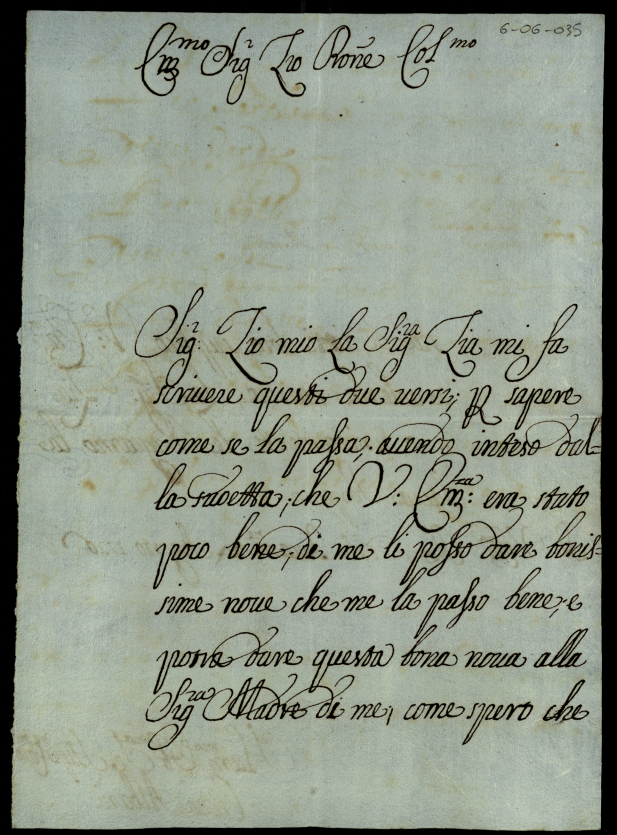 6-06-035
Em.mo Sig.r Zio Prõne Col.mo
Sig.r Zio mio La Sig.ra Zia mi fa
scrivere questi due versi; p sapere
come se la passa, avendo inteso dal-
la sadetta, che V: Em.za: era stato
poco bene, di me li posso dare bonis-
sime nove che me la passo bene, e
potra dare questa bona nova alla
Sig.ra Madre di me, come spero che